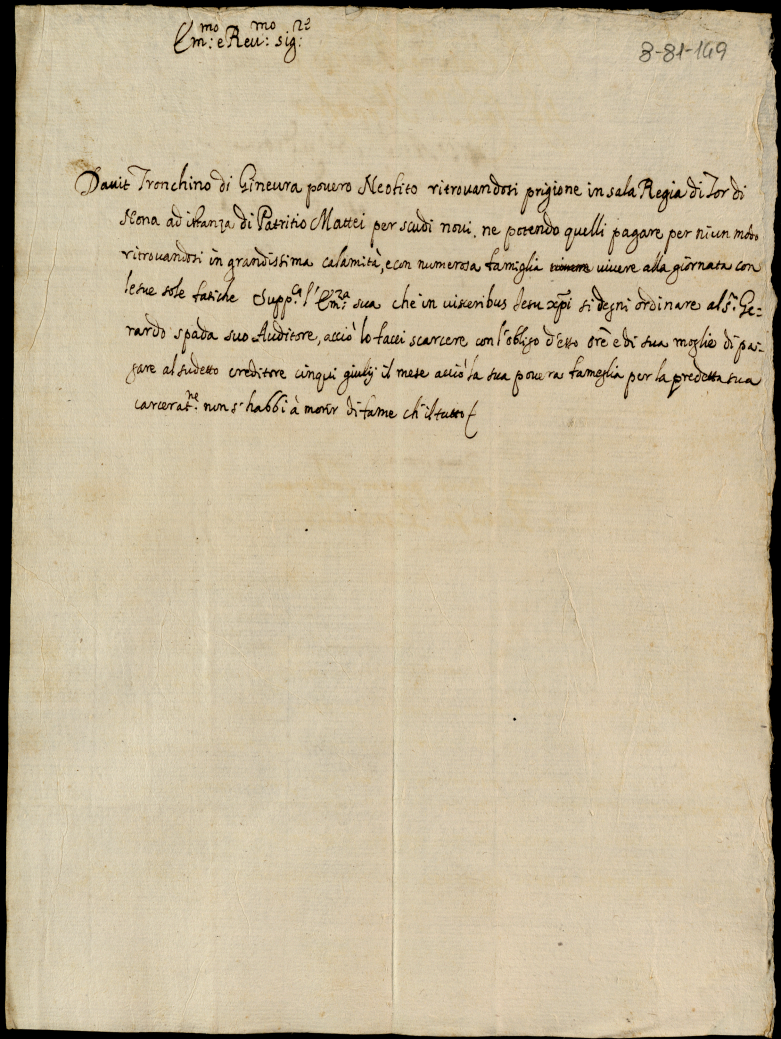 Em:mo e Reu:mo sig:re
8-81-149
Dauit Tronchino di Gineura pouero Neofito ritrouandosi prigione in sala Regia di Tor di
Nona ad istanza di Patritio Mattei per scudi noui, ne potendo quelli pagare per niun modo
ritrouandosi in grandissima calamità, e con numerosa famiglia uiuere alla giornata con
le sue sole fatiche Supp:ca l'Em:za sua che in uisceribus Iesu xpi si degni ordinare al s.r Ge=
rardo spada suo Auditore, acciò lo facci scarcere con l'obligo d'esso ore e di sua moglie di pa=
gare al sudetto creditore cinqui giulij il mese acciò la sua pouera fameglia per la predetta sua
carcerat:ne non s'habbi à morir di fame ch'il tutto